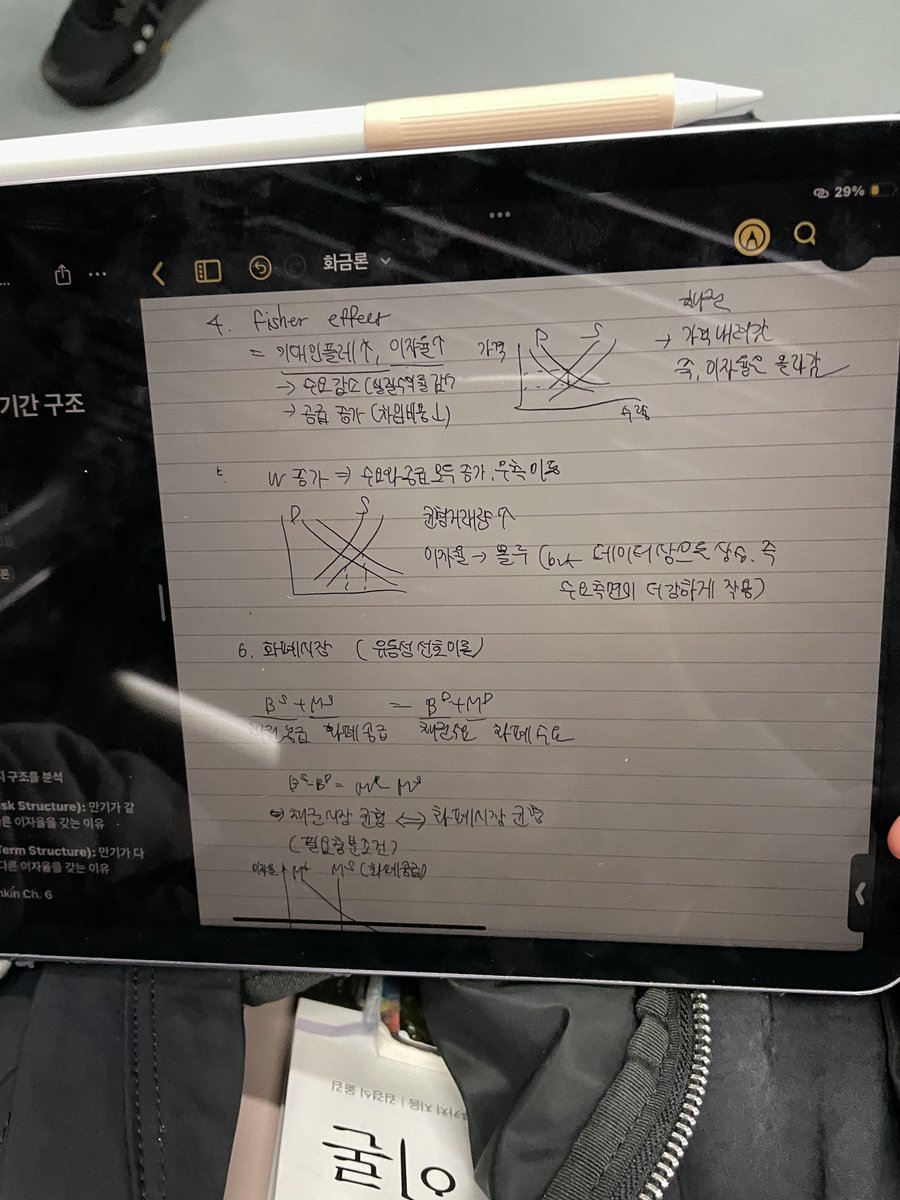 29%
화금론
4. Fisher effect
= 기대인플레↑, 이자율↑
→ 수요감소 (실질수익률 감소)
→ 공급 증가 (차입비용↓)
가격
D S
수량
→ 가격 내려감
즉, 이자율은 올라감
W 증가 ⇒ 수요와 공급 모두 증가, 우측 이동
D S
균형거래량↑
이자율 → 모름 (but 데이터상으로 상승. 즉
수요측면이 더 강하게 작용)
6. 화폐시장 (유동성선호이론)
Bˢ + Mˢ = Bᴰ + Mᴰ
채권공급 화폐공급 채권수요 화폐수요
Bˢ-Bᴰ = Mᴰ-Mˢ
⇒ 채권시장 균형 ⇔ 화폐시장 균형
(필요충분조건)
이자율 Mᵈ Mˢ (화폐공급)
기간 구조
지 구조를 분석
sk Structure): 만기가 같
른 이자율을 갖는 이유
Term Structure): 만기가 다
다른 이자율을 갖는 이유
hkin Ch. 6